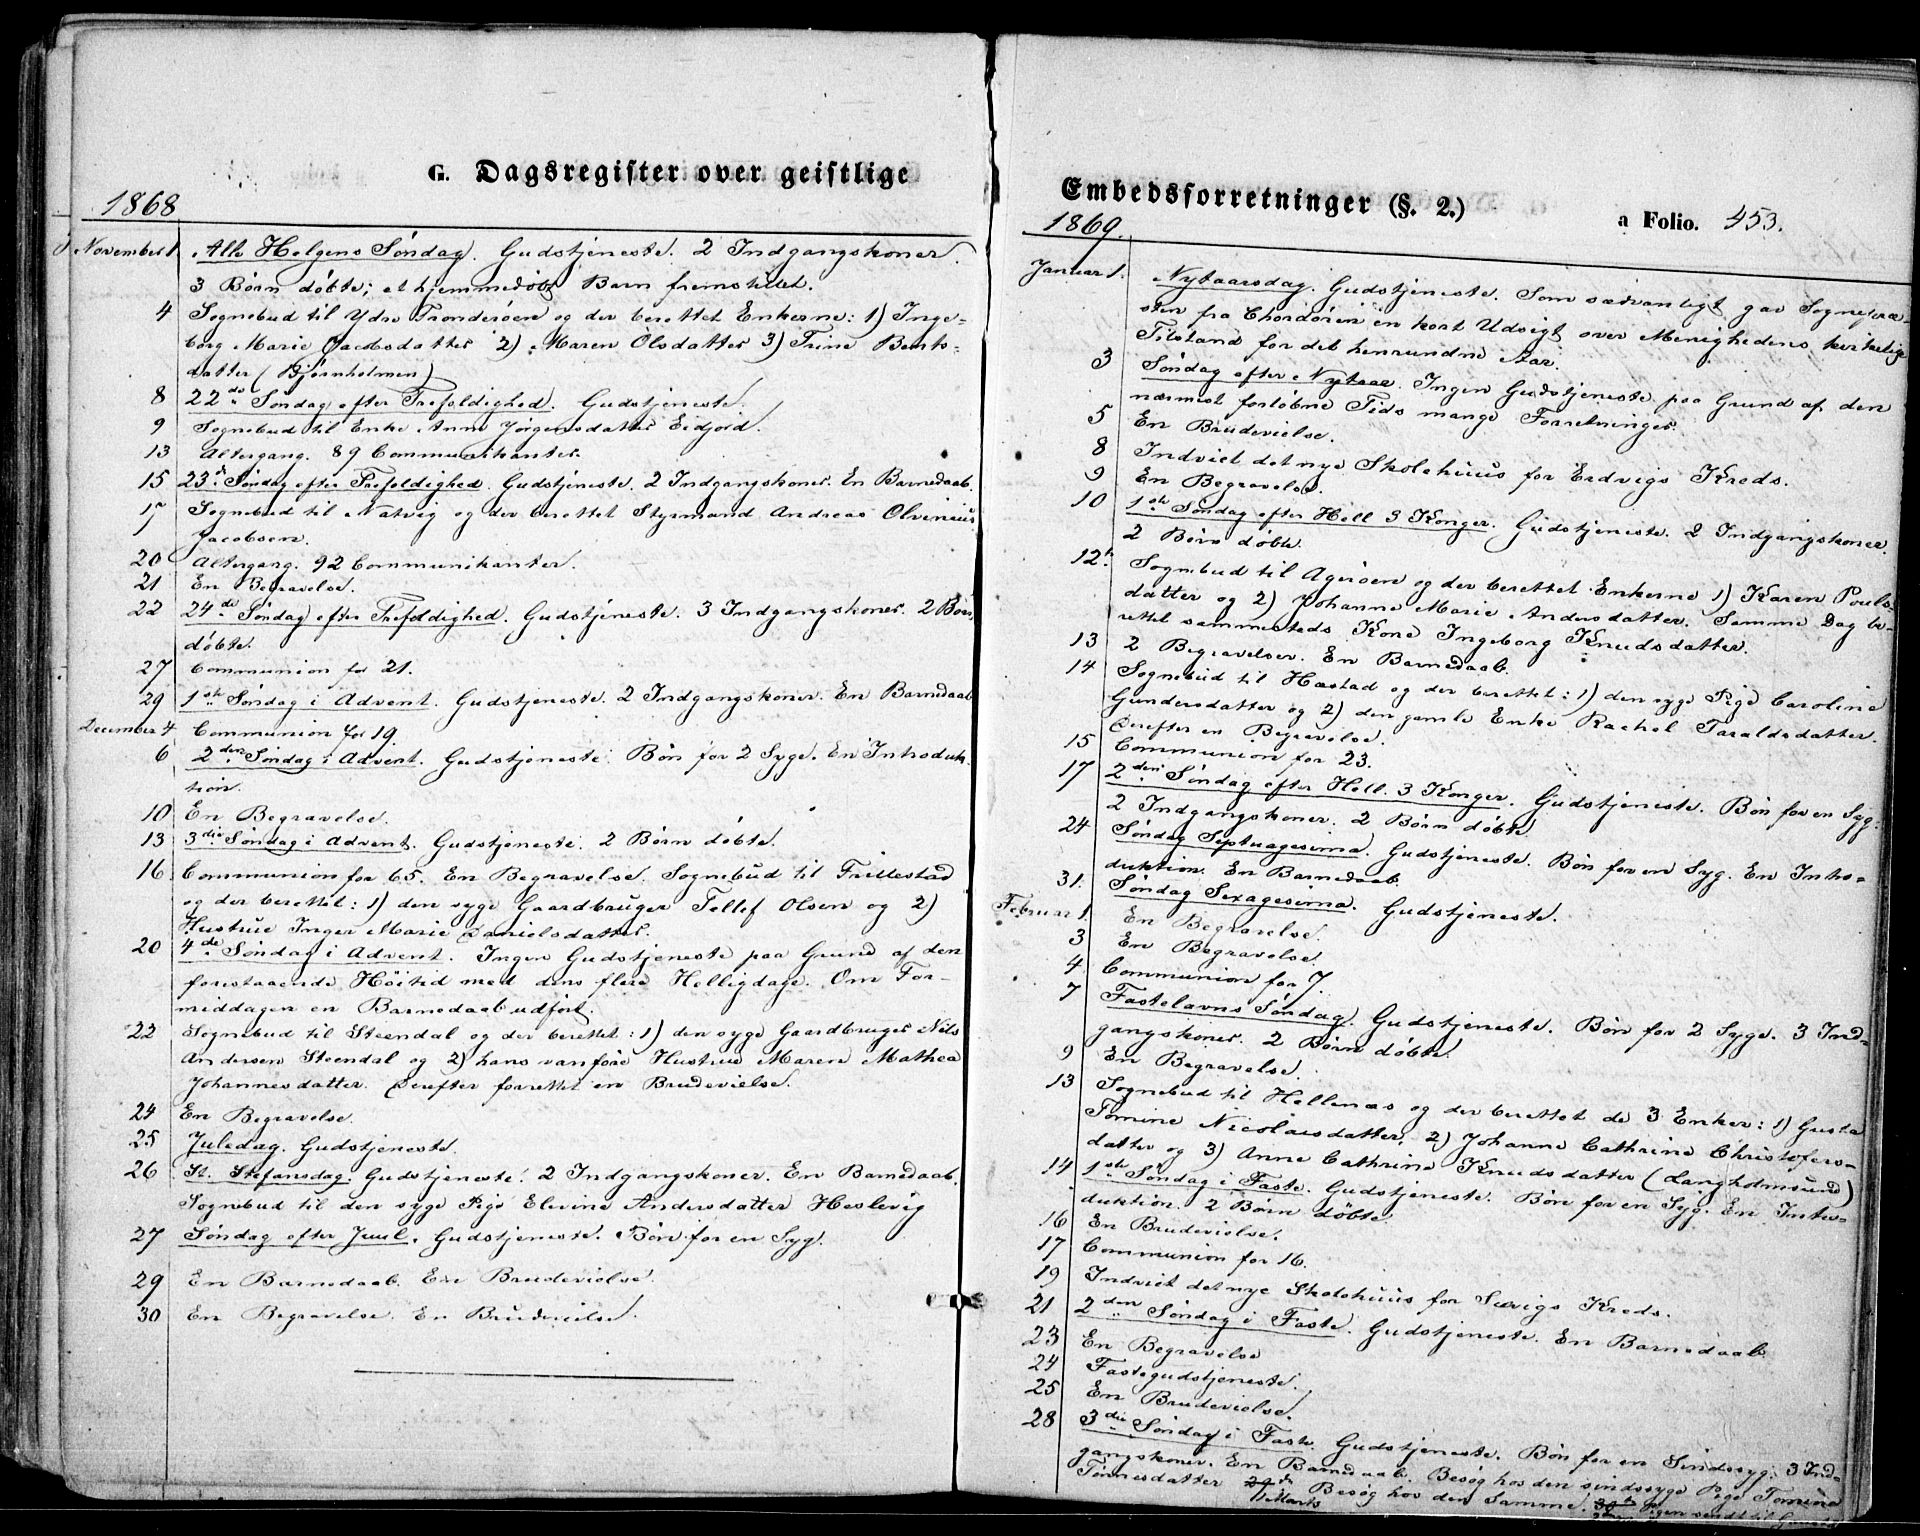 G. Dagsregister over geistlige
1868
November 1. Alle Helgens Søndag. Gudstjeneste. 2 Indgangskoner.
3 Børn døbte; et hjemmedøbt Barn fremstillet.
4 Sognebud til Ydre Tronderøen og der berettet Enkerne: 1) Inge-
borg Marie Jacobsdatter 2) Maren Olsdatter 3) Trine Bents-
datter (Bjørnholmen)
8 22de Søndag efter Trefoldighed. Gudstjeneste.
9 Sognebud til Enke Anne Jørgensdatter Eidjord.
13 Altergang. 89 Communikanter.
15 23de Søndag efter Trefoldighed. Gudstjeneste. 2 Indgangskoner. En Barnedaab.
17 Sognebud til Natvig og der berettet Styrmand Andreas Olvinius
Jacobsen.
20 Altergang. 92 Communikanter.
21 En Begravelse.
22 24de Søndag efter Trefoldighed. Gudstjeneste. 3 Indgangskoner. 2 Børn
døbte.
27 Communion for 21.
29 1ste Søndag i Advent. Gudstjeneste. 2 Indgangskoner. En Barnedaab
December 4 Communion for 19.
6 2den Søndag i Advent. Gudstjeneste. Bøn for 2 Syge. En Introduk-
tion.
10 En Begravelse.
13 3die Søndag i Advent. Gudstjeneste. 2 Børn døbte.
16 Communion for 65. En Begravelse. Sognebud til Trillestad
og der berettet: 1) den syge Gaardbruger Tellef Olsen og 2)
Hustrue Inger Marie Danielsdatter.
20 4de Søndag i Advent. Ingen Gudstjeneste paa Grund af den
forestaaende Høitid med dens flere Helligdage. Om For-
middagen en Barnedaab udført.
22 Sognebud til Steendal og der berettet: 1) den syge Gaardbruger Nils
Andersen Steendal og 2) hans vanføre Hustrue Maren Mathea
Johannesdatter. Derefter forrettet en Brudevielse.
24 En Begravelse.
25 Juledag. Gudstjeneste.
26 St. Stefansdag. Gudstjeneste. 2 Indgangskoner. En Barnedaab.
Sognebud til den syge Pige Elevine Andersdatter Heslevig
27 Søndag efter Juul. Gudstjeneste. Bøn for en Syg.
29 En Barnedaab. En Brudevielse.
30 En Begravelse. En Brudevielse.
Embedsforretninger (§. 2.) a Folio. 453.
1869.
Januar 1. Nytaarsdag. Gudstjeneste. Som sædvanligt gav Sognepræ-
sten fra Chordøren en kort Udsigt over Menighedens kirkelige
Tilstand for det henrundne Aar.
3 Søndag efter Nytaar. Ingen Gudstjeneste paa Grund af den
nærmest forløbne Tids mange Forretninger.
5 En Brudevielse.
8 Indviet det nye Skolehuus for Erdvigs Kreds.
9 En Begravelse.
10 1ste Søndag efter Hell. 3 Konger. Gudstjeneste. 2 Indgangskoner.
2 Børn døbte.
12te Sognebud til Agerøen og der berettet Enkerne 1) Karen Pouls-
datter og 2) Johanne Marie Andersdatter. Samme Dag be-
rettet sammesteds Kone Ingeborg Knudsdatter.
13 2 Begravelser. En Barnedaab.
14 Sognebud til Hæstad og der berettet: 1) den syge Pige Caroline
Gundersdatter og 2) den gamle Enke Rachel Taraldsdatter.
Derefter en Begravelse.
15 Communion for 23.
17 2den Søndag efter Hell. 3 Konger. Gudstjeneste. Bøn for en Syg.
2 Indgangskoner. 2 Børn døbte.
24 Søndag Septuagesima. Gudstjeneste. Bøn for en Syg. En Intro-
duktion. En Barnedaab.
31. Søndag Sexagesima. Gudstjeneste.
Februar 1. En Begravelse.
3 En Begravelse.
4 Communion for 7.
7 Fastelavns Søndag. Gudstjeneste. Bøn for 2 Syge. 3 Ind-
gangskoner. 2 Børn døbte.
9 En Begravelse.
13 Sognebud til Hellenæs og der berettet de 3 Enker: 1) Gusta
Tomine Nicolaisdatter, 2) Johanne Cathrine Christofers-
datter og 3) Anne Cathrine Knudsdatter (Langholmsund)
14 1ste Søndag i Faste. Gudstjeneste. Bøn for en Syg. En Intro-
duktion. 2 Børn døbte.
16 En Brudevielse.
17 Communion for 16.
19 Indviet det nye Skolehuus for Sævigs Kreds.
21 2den Søndag i Faste. Gudstjeneste. En Barnedaab
23 En Begravelse
24 Fastegudstjeneste.
25 En Brudevielse.
28 3die Søndag i Faste. Gudstjeneste. Bøn for en Sindssyg. 3 Ind-
gangskoner. En Barnedaab. Besøg hos den sindssyge Pige Tomine
Tønnesdatter Marts Besøg hos den Samme. Pigen sendt til